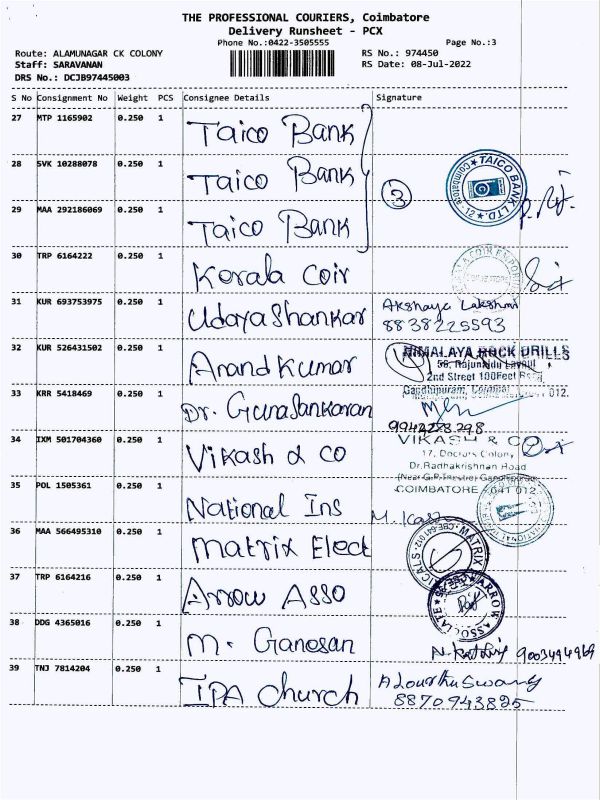 THE PROFESSIONAL COURIERS, Coimbatore
Delivery Runsheet - PCX
Phone No.:0422-3505555
Page No.:3
Route: ALAMUNAGAR CK COLONY
RS No.: 974450
Staff: SARAVANAN
RS Date: 08-Jul-2022
DRS No.: DCJB97445003
S No Consignment No Weight PCS Consignee Details Signature
27 MTP 1165902 0.250 1 Taico Bank
28 SVK 10288078 0.250 1 Taico Bank 3 TAICO BANK LTD. Coimbatore - 12
29 MAA 292186069 0.250 1 Taico Bank
30 TRP 6164222 0.250 1 Kerala Coir
31 KUR 693753975 0.250 1 Udaya Shankar Akshaya Lakshmi
8838225593
32 KUR 526431502 0.250 1 Anand Kumar HIMALAYA ROCK DRILLS
2nd Street 100Feet Road
33 KRR 5418469 0.250 1 Dr. Gunasankaran
9942278298
34 IXM 501704360 0.250 1 Vikash & CO VIKASH & CO
17, Doctors Colony
Dr.Radhakrishnan Road
(Near G.P.Theatre) Gandhipuram
COIMBATORE - 641 012.
35 POL 1505361 0.250 1 National Ins
36 MAA 566495310 0.250 1 Matrix Elect MATRIX
37 TRP 6164216 0.250 1 Arrow Asso ARROW ASSOCIATE
38 DDG 4365016 0.250 1 M. Ganesan
9003494969
39 TNJ 7814204 0.250 1 IPA Church A Lourthuswamy
8870943825